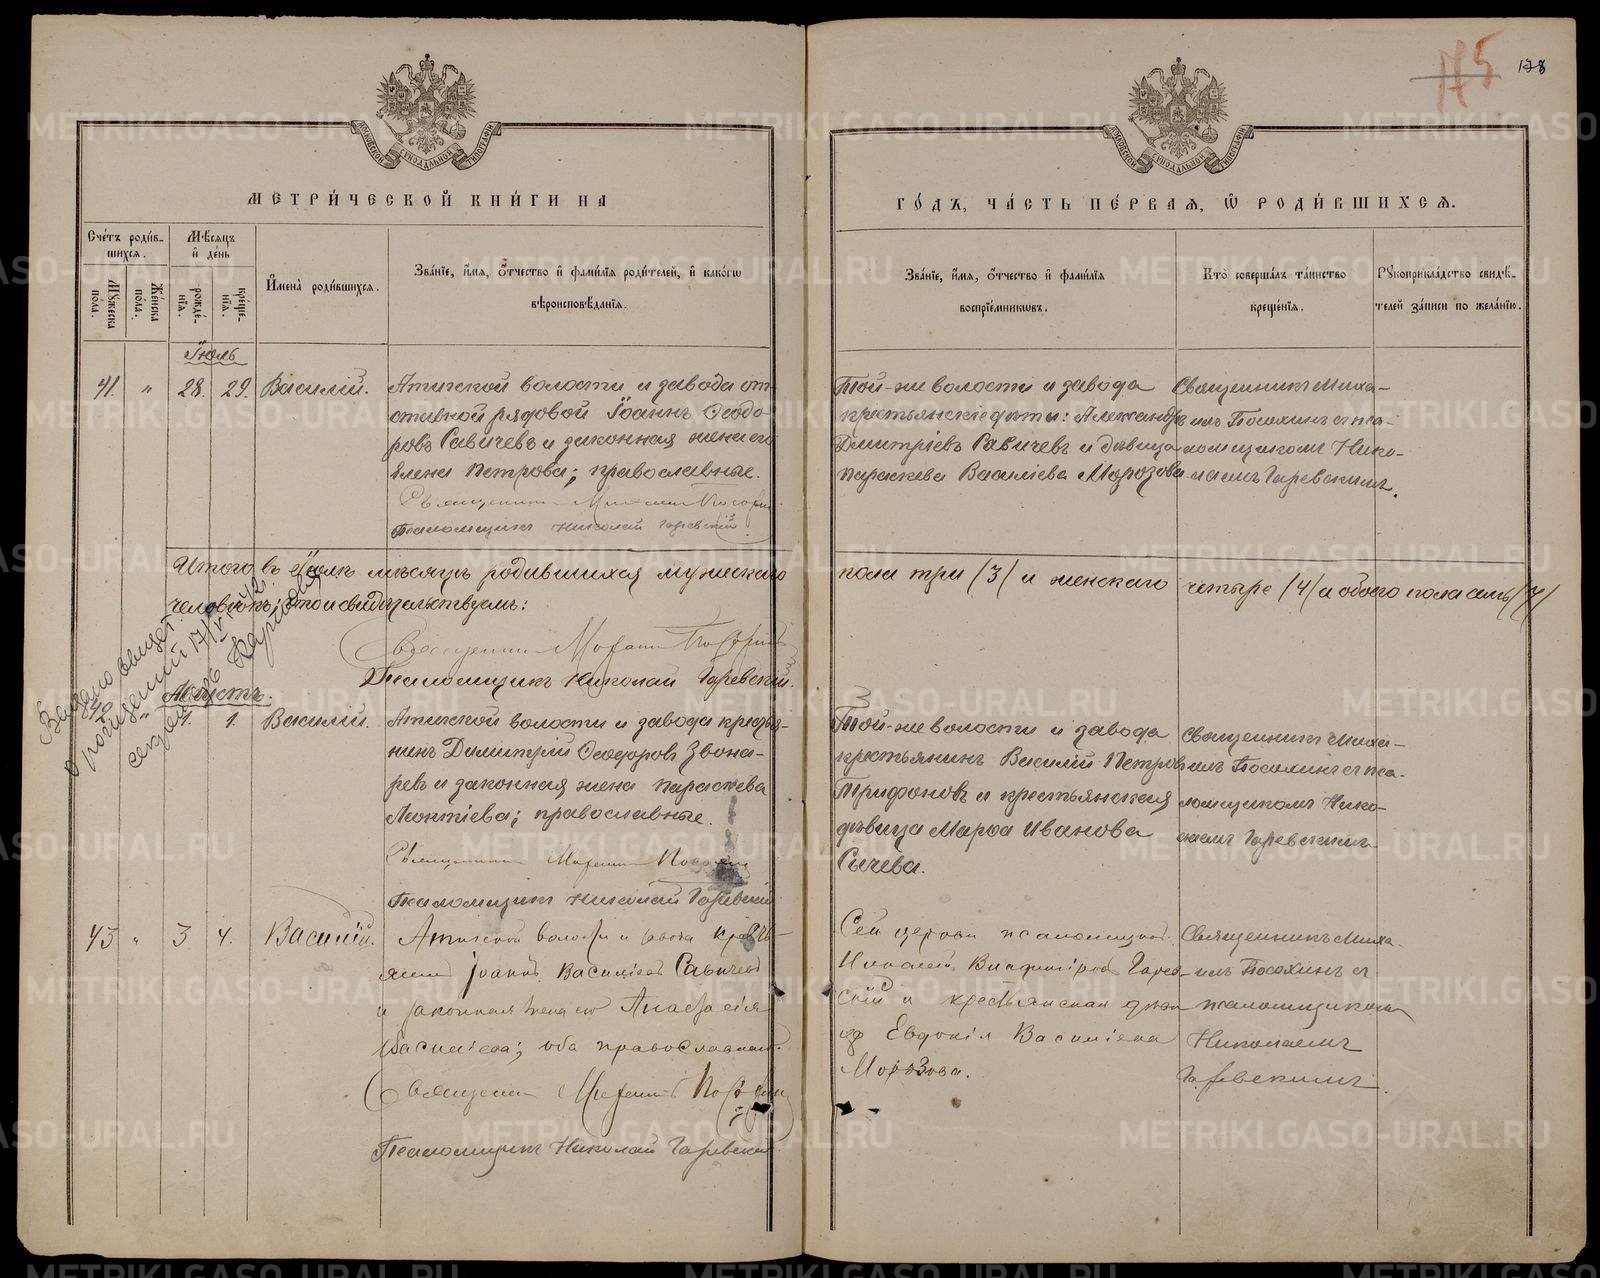 175
178
МЕТРИ́ЧЕСКОЙ КНИ́ГИ НА
ГО́ДЪ, ЧА́СТЬ ПЕ́РВАЯ, Ѡ РОДИ́ВШИХСЯ.
Сче́тъ роди́в-
шихся.
Му́жеска
по́ла.
Же́нска
по́ла.
Мѣ́сяцъ
и де́нь
рожде́-
нїя.
креще́-
нїя.
Имена̀ роди́вшихся.
Зва́нїе, и́мя, о́тчество и фами́лїя роди́телей, и како́гѡ
вѣроисповѣ́данїя.
Зва́нїе, и́мя, о́тчество и фами́лїя
воспрїе́мникѡвъ.
Кто̀ соверша́лъ та́инство
креще́нїя.
Рꙋкоприкла́дство свидѣ́-
телей за́писи по жела́нїю.
Іюль
41. " 28. 29. Василій.
Атигской волости и завода от-
ставной рядовой Іоаннъ Ѳеодо-
ровъ Савичевъ и законная жена его
Елена Петрова; православные.
Священникъ Михаилъ
Псаломщикъ Николай Горевскій
Той-же волости и завода
крестьянскіе дѣти: Александръ
Димитріевъ Савичевъ и дѣвица
Параскева Василіева Морозова
Священникъ Миха-
илъ съ пса-
ломщикомъ Нико-
лаемъ
Итого въ Іюлѣ мѣсяцѣ родившихся мужескаго
пола три /3/ и женскаго четыре /4/ а обоего пола семь /7/
человѣкъ; что и свидѣтельствуемъ:
Священникъ Михаилъ
Псаломщикъ Николай
Выдано
Августъ.
42 " 1. 1. Василій.
Атигской волости и завода крестья-
нинъ Димитрій Ѳеодоровъ Звона-
ревъ и законная жена Параскева
Леонтіева; православные.
Священникъ Михаилъ
Псаломщикъ Николай
Той-же волости и завода
крестьянинъ Василій Петровъ
Трифоновъ и крестьянская
дѣвица Марѳа Иванова
Сычева.
Священникъ Миха-
илъ съ пса-
ломщикомъ Нико-
лаемъ
43 " 3 4. Василій.
Атигской волости и завода крестья-
нинъ Іоаннъ Василіевъ Савичевъ
и законная жена его Анастасія
Василіева; оба православные.
Священникъ Михаилъ
Псаломщикъ Николай
Сей церкви псаломщикъ
Николай Владиміровъ Горев-
скій и крестьянская дѣви-
ца Евдокія Василіева
Морозова.
Священникъ Миха-
илъ съ
псаломщикомъ
Николаемъ
METRIKI.GASO-URAL.RU